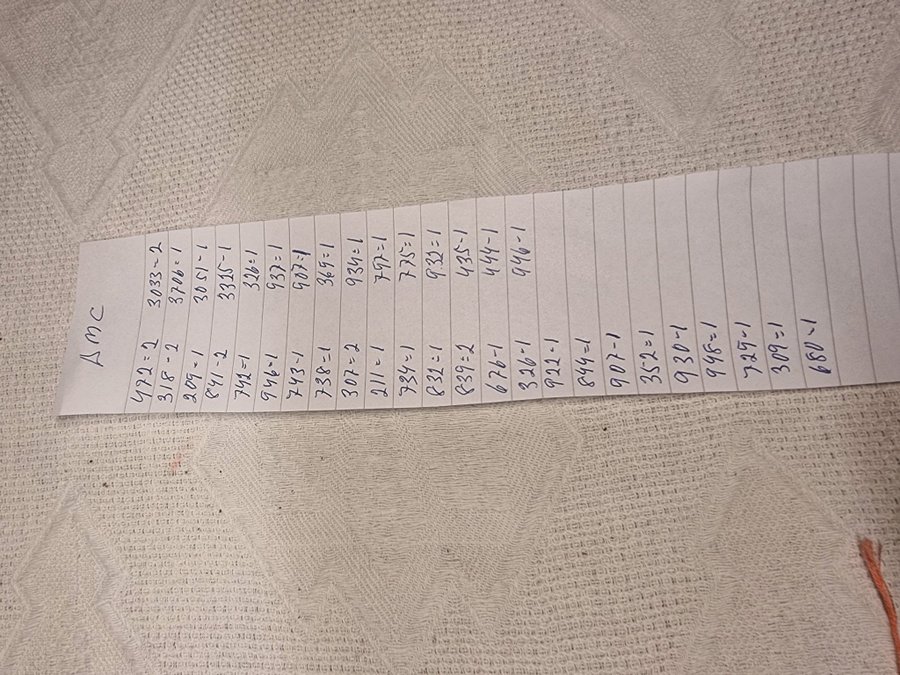 AMC
472=2 3033=2
318-2 3706=1
209=1 3051-1
841-2 3325-1
742=1 326=1
946=1 937=1
743-1 907=1
738=1 369=1
307=2 934=1
211=1 797=1
734=1 775=1
832=1 932=1
839=2 435-1
676-1 444-1
326=1 946-1
922-1
844=1
907-1
352=1
930-1
948=1
729-1
309=1
680-1